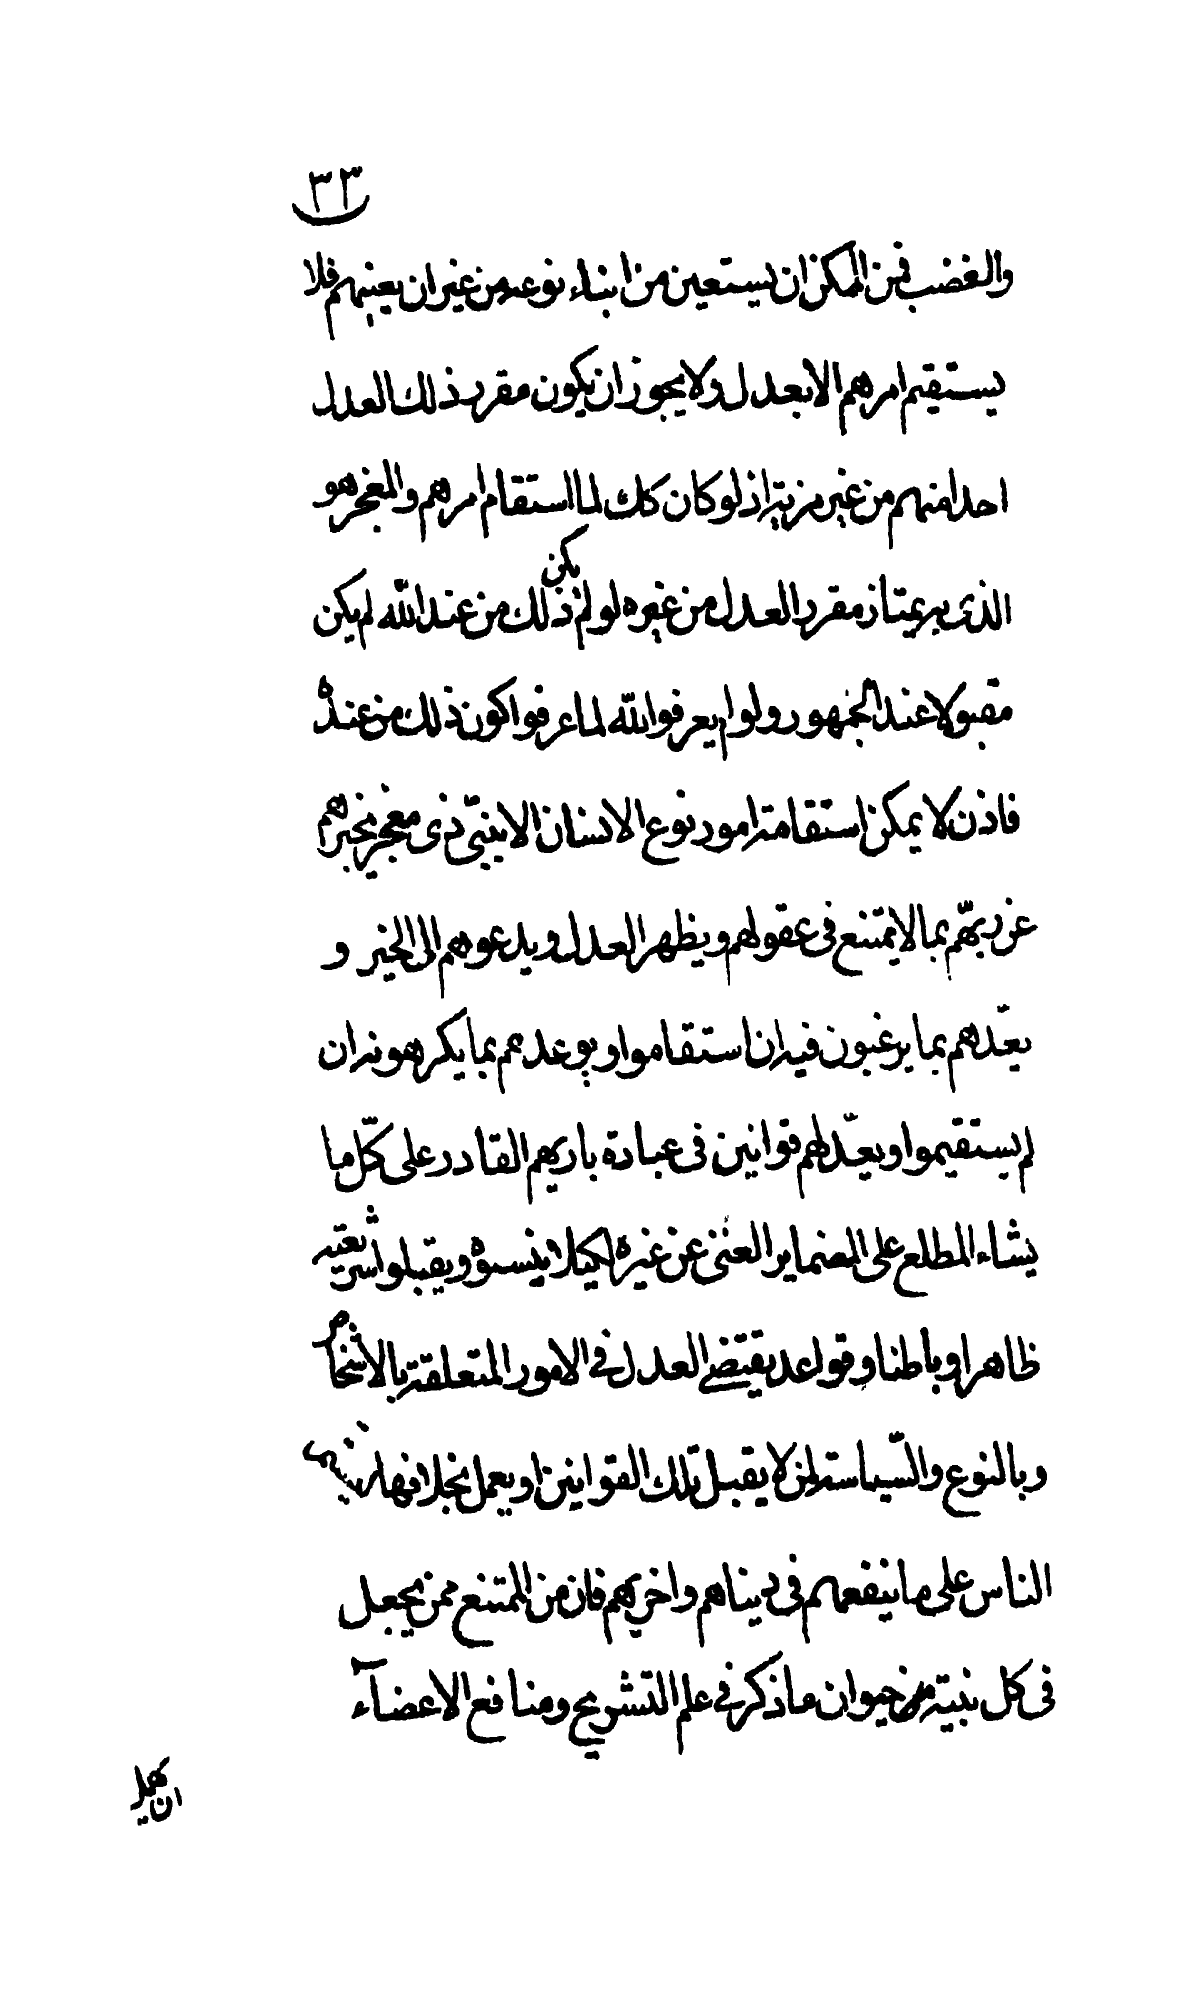 ٣٣
والغضب فمن الممكن ان يستعين من ابناء نوعه من غير ان يعينهم فلا
يستقيم امرهم الا بعدل ولا يجوز ان يكون مقرر ذلك العدل
احدا منهم من غير مزية اذ لو كان كك لما استقام امرهم والمعجز هو
الذى به يمتاز مقرر العدل من غيره لو لم يكن ذلك من عند الله لم يكن
مقبولا عند الجمهور ولو لم يعرفوا الله لما عرفوا كون ذلك من عنده
فاذن لا يمكن استقامة امور نوع الانسان الا بنبىّ ذى معجز يخبرهم
عن ربّهم بما لا يمتنع فى عقولهم ويظهر العدل ويدعوهم الى الخير و
يعّدهم بما يرغبون فيه ان استقاموا ويوعدهم بما يكرهونه ان
لم يستقيموا ويعّد لهم قوانين فى عبادة باريهم القادر على كلّ ما
يشاء المطلع على الضماير الغنى عن غيره لكيلا ينسوه ويقبلوا شريعته
ظاهرا وباطنا وقواعد يقتضى العدل فى الامور المتعلقة بالاشخاص
وبالنوع والسّياسة لمن لا يقبل تلك القوانين او يعمل بخلافها
الناس على ما ينفعهم فى دنياهم واخريهم فان من الممتنع ممن يجعل
فى كل بنية من حيوان ما ذكر فى علم التشريح ومنافع الاعضاء